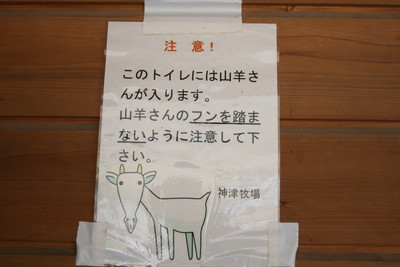 注 意!
このトイレには山羊さ
んが入ります。
山羊さんのフンを踏ま
ないように注意して下
さい。
神津牧場